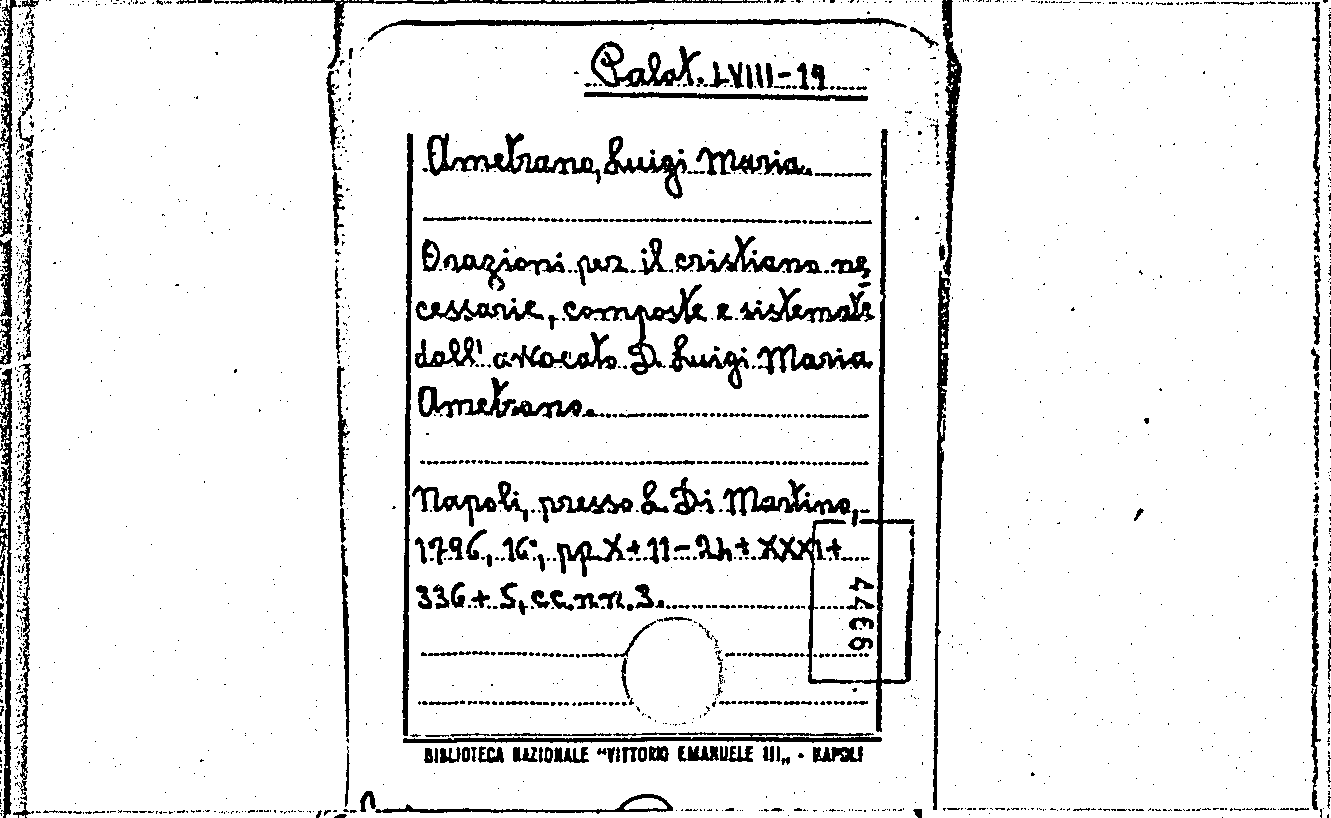 Palat. LVIII-19
Ametrano, Luigi Maria.
Orazioni per il cristiano ne
cessarie, composte e sistemate
dall' avvocato D. Luigi Maria
Ametrano.
Napoli, presso L. Di Martino,
1796, 16°, pp. X+11-24+XXXI+
336+5, cc. nn. 3.
4466
BIBLIOTECA NAZIONALE "VITTORIO EMANUELE III„ - NAPOLI